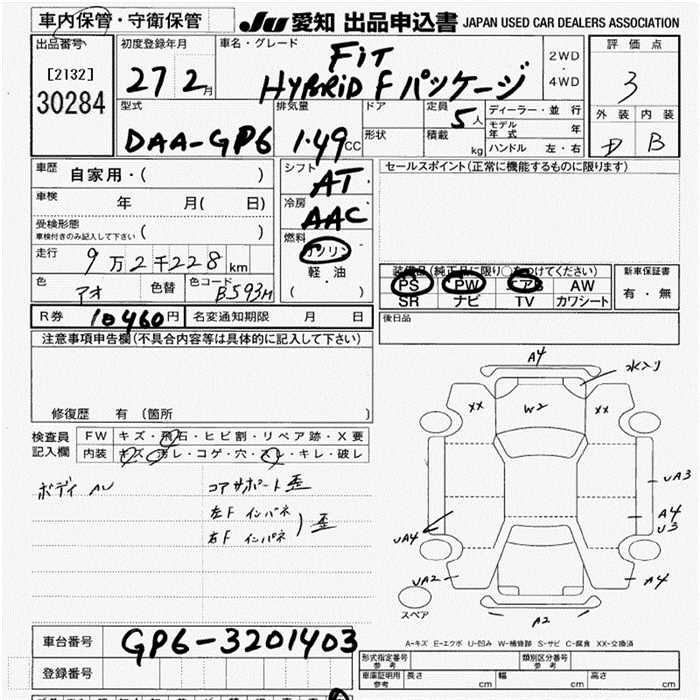 車内保管・守衛保管 JU 愛知 出品申込書 JAPAN USED CAR DEALERS ASSOCIATION
出品番号 初度登録年月 車名・グレード 2WD・4WD 評価点
[2132] 27 2月 FiT 3
30284 HYBRiD F パッケージ
型式 排気量 ドア 定員 ディーラー・並行 外装 内装
DAA-GP6 1.49CC 形状 5人 積載 kg モデル年式 年 B
ハンドル 左・右
車歴 自家用・( ) シフト AT セールスポイント(正常に機能するものに限ります)
車検 年 月( 日) 冷房 AAC
受検形態 車検付きのみ記入して下さい ( ) 燃料 ガソリン
走行 9万2千228km 軽油
色 アオ 色替 色コード B593M ( )
装備品(純正品に限り○をつけてください) 新車保証書
PS PW エアB AW 有・無
SR ナビ TV カワシート
R券 10460円 名変通知期限 月 日 後日品
注意事項申告欄(不具合内容等は具体的に記入して下さい)
修復歴 有(箇所 )
検査員記入欄 FW キズ・飛石・ヒビ割・リペア跡・X要
内装 キズ・汚レ・コゲ・穴・スレ・キレ・破レ
ボディ AU コアサポート歪
左F インパネ
右F インパネ ) 歪
A4 水入り
XX W2 XX
UA3
A4
U3
UA4
UA2 A4
スペア A2
A-キズ E-エクボ U-凹み W-補修跡 S-サビ C-腐食 XX-交換済
車台番号 GP6-3201403
登録番号
形式指定番号 参考 類別区分番号 参考
車庫証明用 参考 長さ cm 幅 cm 高さ cm